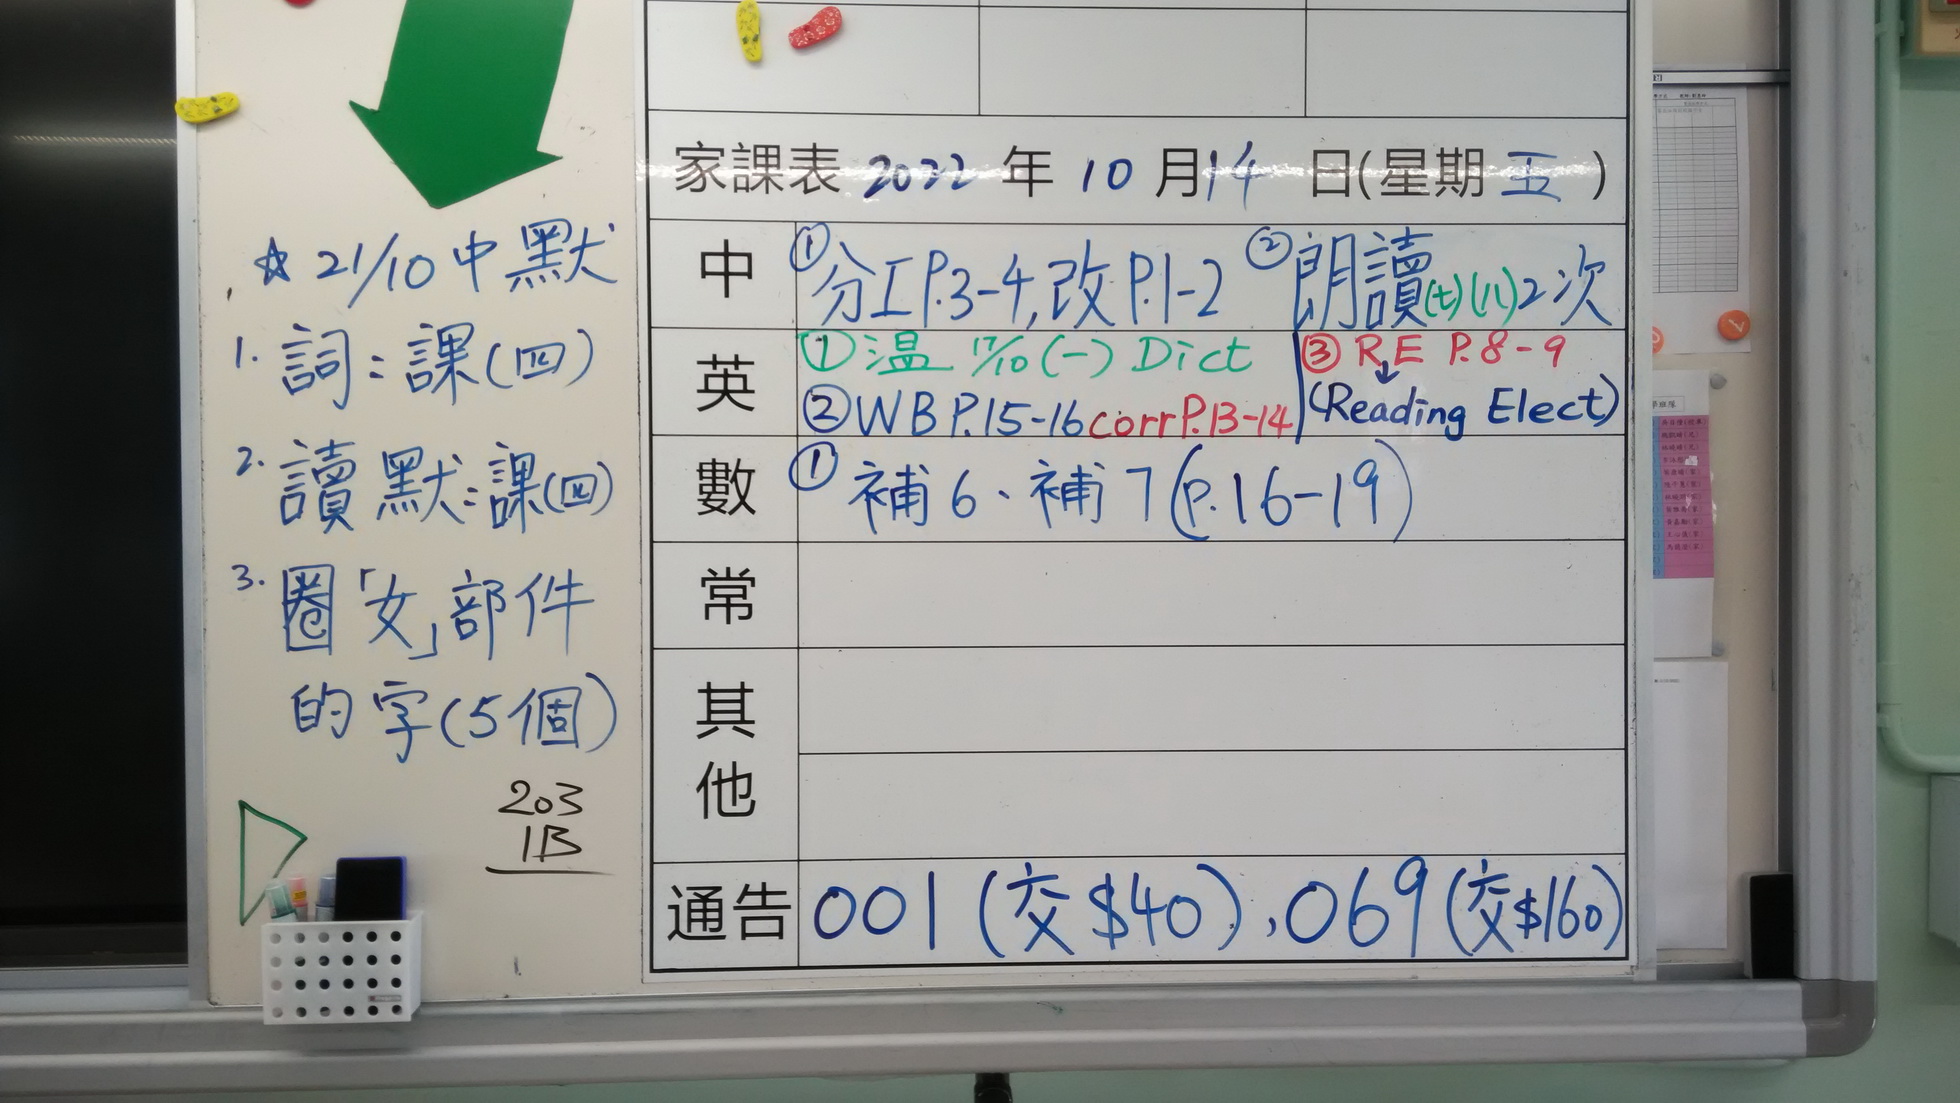 ☆ 21/10 中默
1. 詞：課(四)
2. 讀默：課(四)
3. 圈「女」部件
的字(5個)
203
1B
家課表 2022 年 10 月 14 日(星期 五 )
中 ① 分工P.3-4, 改P.1-2 ② 朗讀(七)(八)2次
英 ① 温 17/10 (一) Dict ③ RE P.8-9
② WB P.15-16 corr P.13-14 (Reading Elect)
數 ① 補6、補7(p.16-19)
常
其
他
通告 001 (交$40), 069 (交$160)